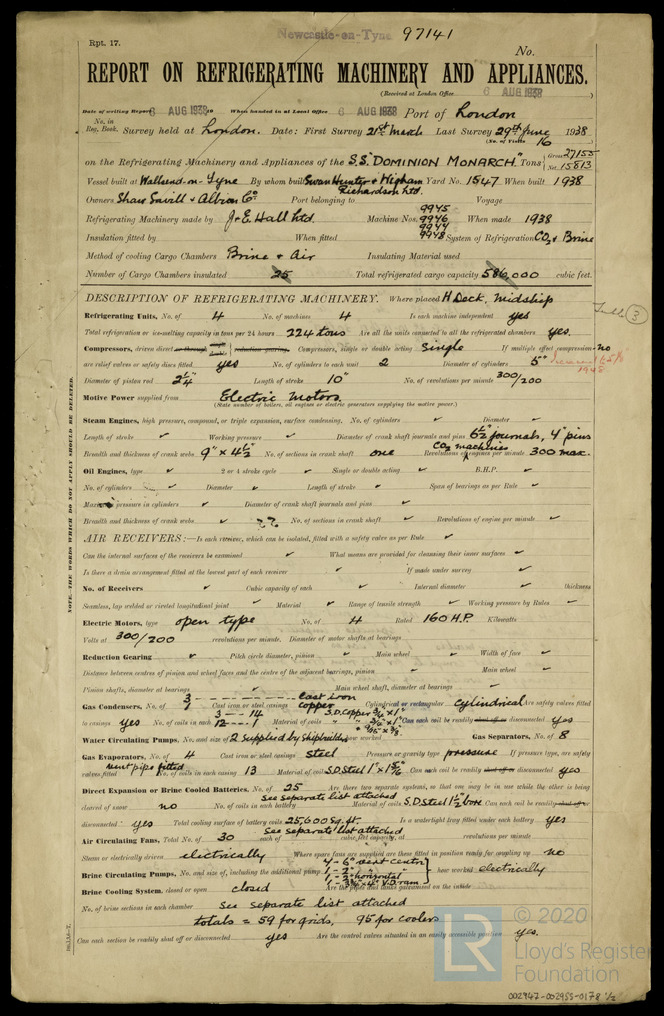 Newcastle-on-Tyne 97141
Rpt. 17.
No.
REPORT ON REFRIGERATING MACHINERY AND APPLIANCES.
(Received at London Office 6 AUG 1938 )
Date of writing Report 6 AUG 1938 19 When handed in at Local Office 6 AUG 1938 Port of London
No. in Reg. Book. Survey held at London. Date: First Survey 21st March Last Survey 29th June 1938
(No. of Visits 16
on the Refrigerating Machinery and Appliances of the S.S. "DOMINION MONARCH" Tons Gross 27155 Net 15813
Vessel built at Wallsend-on-Tyne By whom built Swan Hunter & Wigham Richardson Ltd. Yard No. 1547 When built 1938
Owners Shaw Savill & Albion Co. Port belonging to Voyage
Refrigerating Machinery made by J & E. Hall Ltd. Machine Nos. 9945 9946 9947 9948 When made 1938
Insulation fitted by When fitted System of Refrigeration CO2 & Brine
Method of cooling Cargo Chambers Brine & Air Insulating Material used
Number of Cargo Chambers insulated 25 Total refrigerated cargo capacity 586,000 cubic feet.
DESCRIPTION OF REFRIGERATING MACHINERY. Where placed H Deck, Midship
Refrigerating Units, No. of 4 No. of machines 4 Is each machine independent yes
Total refrigeration or ice-melting capacity in tons per 24 hours 224 tons Are all the units connected to all the refrigerated chambers yes
Compressors, driven direct or through single double reduction gearing. Compressors, single or double acting Single If multiple effect compression no
are relief valves or safety discs fitted yes No. of cylinders to each unit 2 Diameter of cylinders 5"
Diameter of piston rod 2¼" Length of stroke 10" No. of revolutions per minute 300/200
Motive Power supplied from Electric motors
(State number of boilers, oil engines or electric generators supplying the motive power.)
Steam Engines, high pressure, compound, or triple expansion, surface condensing, No. of cylinders Diameter
Length of stroke Working pressure Diameter of crank shaft journals and pins 6½" journals, 4" pins
Breadth and thickness of crank webs 9" x 4½" No. of sections in crank shaft one CO2 machines Revolutions of engines per minute 300 max.
Oil Engines, type 2 or 4 stroke cycle Single or double acting B.H.P.
No. of cylinders Diameter Length of stroke Span of bearings as per Rule
Maximum pressure in cylinders Diameter of crank shaft journals and pins
Breadth and thickness of crank webs No. of sections in crank shaft Revolutions of engine per minute
AIR RECEIVERS:—Is each receiver, which can be isolated, fitted with a safety valve as per Rule
Can the internal surfaces of the receivers be examined What means are provided for cleansing their inner surfaces
Is there a drain arrangement fitted at the lowest part of each receiver If made under survey
No. of Receivers Cubic capacity of each Internal diameter thickness
Seamless, lap welded or riveted longitudinal joint Material Range of tensile strength Working pressure by Rules
Electric Motors, type open type No. of 4 Rated 160 H.P. Kilowatts
Volts at 300/200 revolutions per minute. Diameter of motor shafts at bearings
Reduction Gearing Pitch circle diameter, pinion Main wheel Width of face
Distance between centres of pinion and wheel faces and the centre of the adjacent bearings, pinion Main wheel
Pinion shafts, diameter at bearings Main wheel shaft, diameter at bearings
3 cast iron
Gas Condensers, No. of 1 Cast iron or steel casings copper Cylindrical or rectangular Cylindrical Are safety valves fitted
to casings yes No. of coils in each 3 - - 14 12 - - - 1 Material of coils S.D. Copper Can each coil be readily shut off or disconnected yes
Water Circulating Pumps, No. and size of 2 Supplied by Shipbuilders how worked Gas Separators, No. of 8
Gas Evaporators, No. of 4 Cast iron or steel casings Steel Pressure or gravity type pressure If pressure type, are safety
valves fitted vent pipe fitted No. of coils in each casing 13 Material of coils S.D. Steel Can each coil be readily shut off or disconnected yes
Direct Expansion or Brine Cooled Batteries, No. of 25 Are there two separate systems, so that one may be in use while the other is being
cleared of snow no No. of coils in each battery See separate list attached Material of coils S.D. Steel 1½" bore Can each coil be readily shut off or
disconnected yes Total cooling surface of battery coils 25,600 sq. ft. Is a watertight tray fitted under each battery yes
Air Circulating Fans, Total No. of 30 each of See separate list attached cubic feet capacity, at revolutions per minute
Steam or electrically driven electrically Where spare fans are supplied are these fitted in position ready for coupling up no
Brine Circulating Pumps, No. and size of, including the additional pump 4 - 6" vert centre 1 - 2" " 1 - 2" horizontal how worked electrically
Brine Cooling System, closed or open closed Are the pipes and tanks galvanised on the inside
No. of brine sections in each chamber See separate list attached
totals = 59 for grids, 95 for coolers
Can each section be readily shut off or disconnected yes Are the control valves situated in an easily accessible position yes.
NOTE.—THE WORDS WHICH DO NOT APPLY SHOULD BE DELETED.
LR © 2020
Lloyd's Register
Foundation
002947-002955-0178 1/2